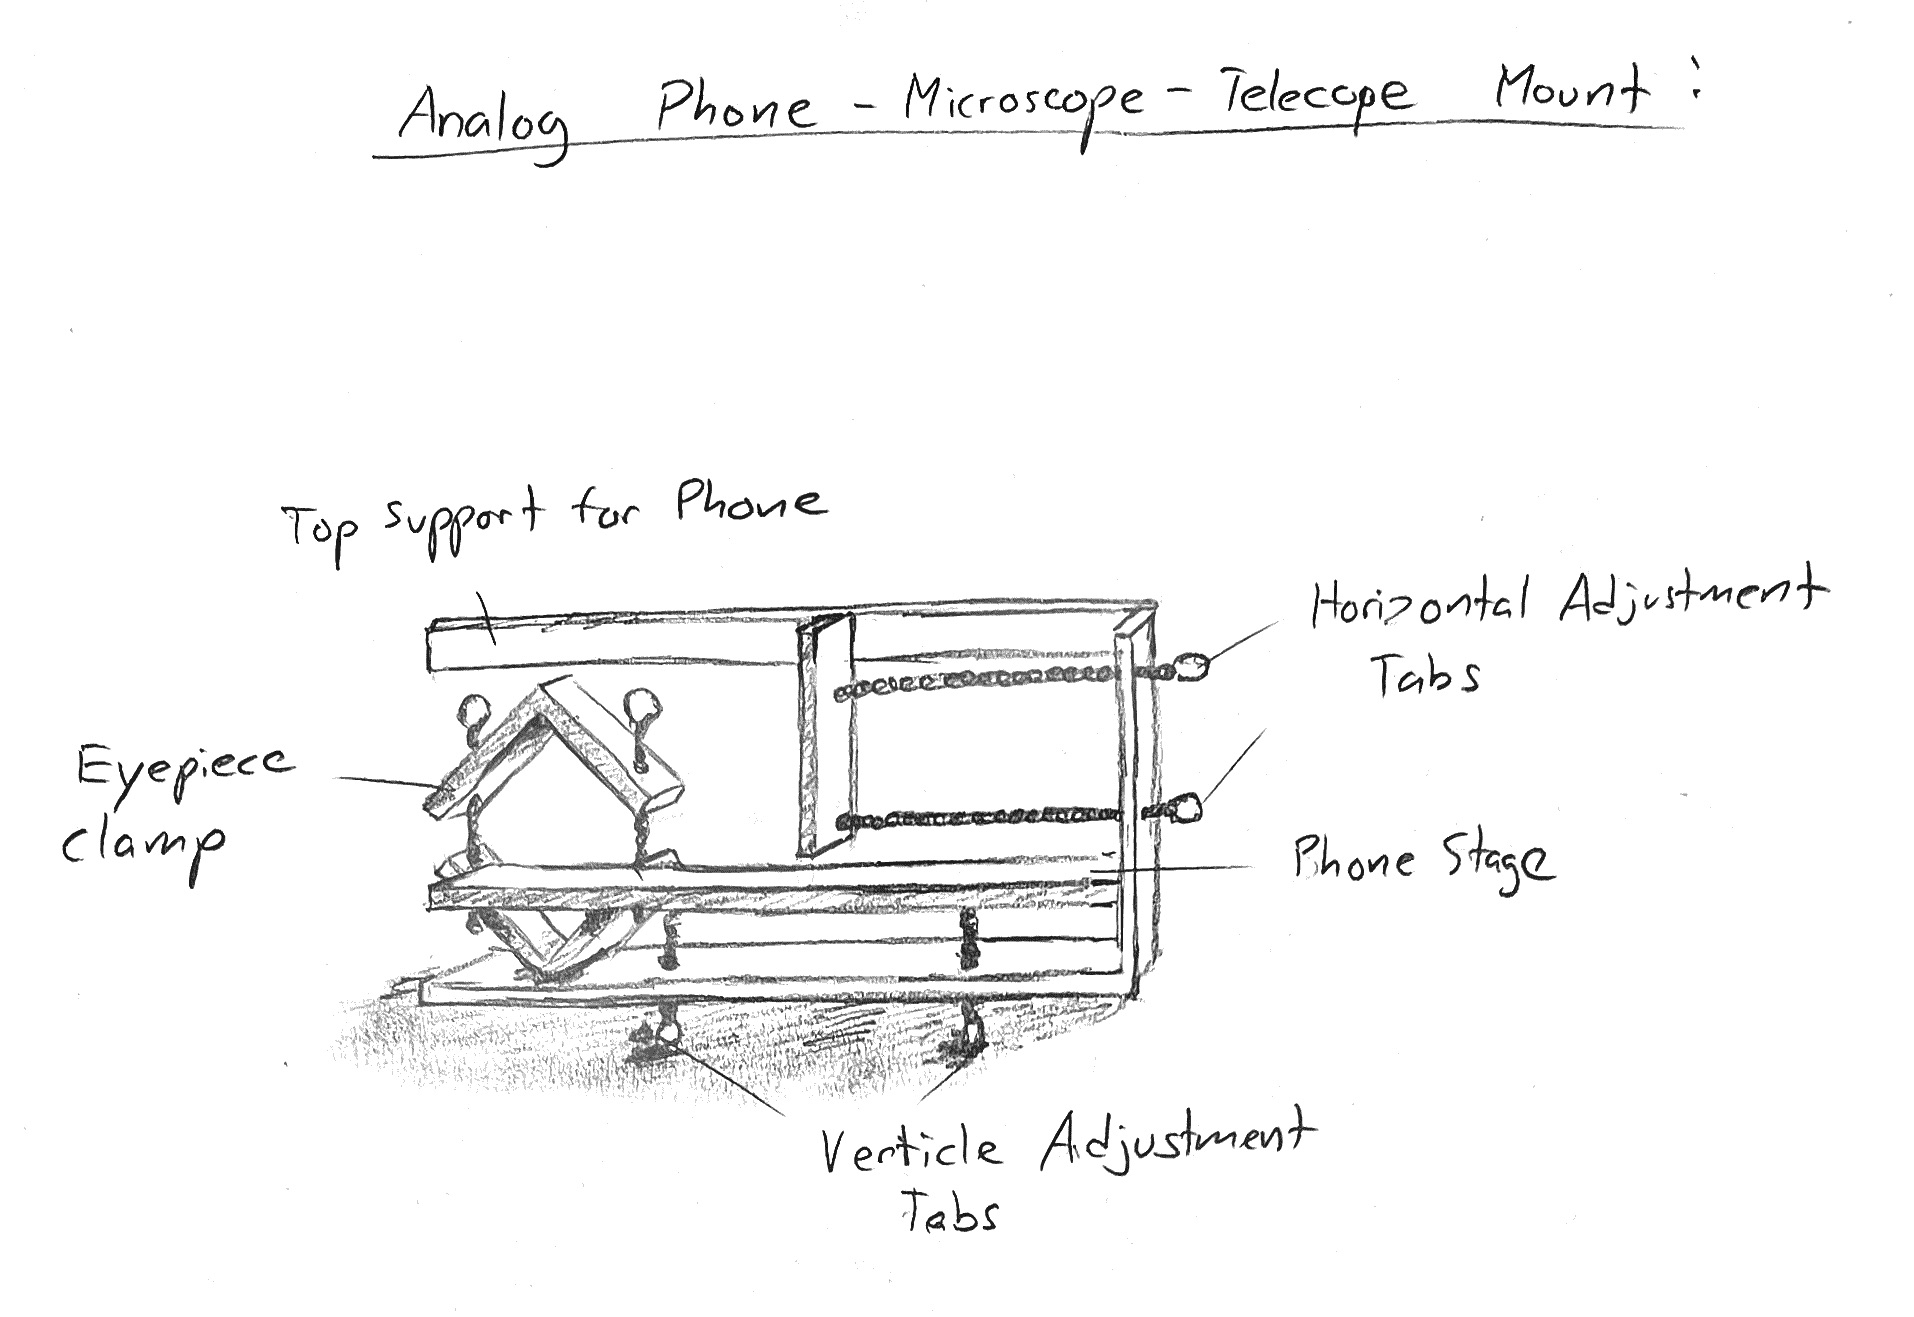 Analog Phone - Microscope - Telecope Mount :
Top support for Phone
Horizontal Adjustment
Tabs
Eyepiece
clamp
Phone Stage
Verticle Adjustment
Tabs